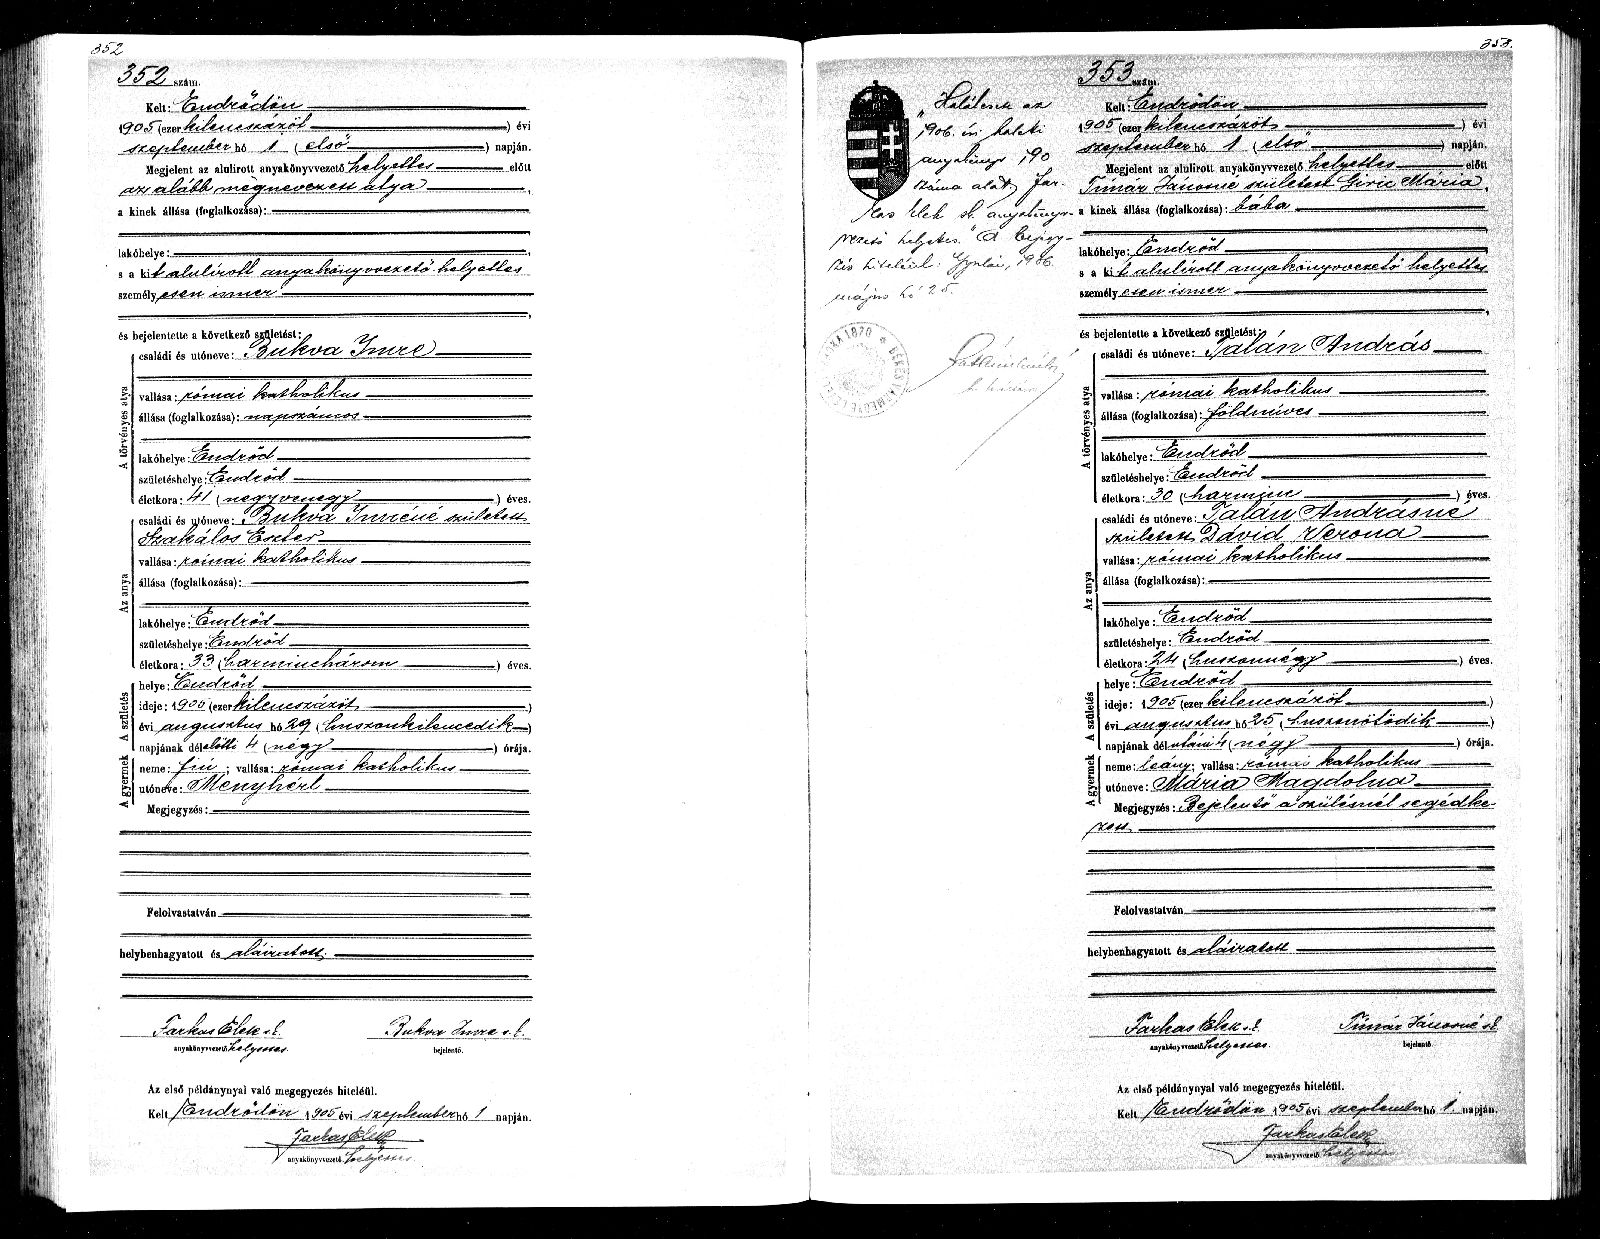 352
352 szám.
Kelt: Endrődön
1905 (ezer kilenczszázöt ) évi
szeptember hó 1 ( első ) napján.
Megjelent az alulirott anyakönyvvezető helyettes előtt
az alább megnevezett atya ,
a kinek állása (foglalkozása):
lakóhelye: ,
s a kit alulírott anyakönyvvezető helyettes
személyesen ismer
,
és bejelentette a következő születést:
A törvényes atya
családi és utóneve: Bukva Imre
vallása: római katholikus
állása (foglalkozása): napszámos
lakóhelye: Endrőd
születéshelye: Endrőd
életkora: 41 (negyvenegy ) éves.
Az anya
családi és utóneve: Bukva Imréné született
Szakálos Eszter
vallása: római katholikus
állása (foglalkozása):
lakóhelye: Endrőd
születéshelye: Endrőd
életkora: 33 (harminchárom ) éves.
A születés
helye: Endrőd
ideje: 1905 (ezer kilenczszázöt )
évi augusztus hó 29 (huszonkilencedik )
napjának délelőtti 4 (négy ) órája.
A gyermek
neme: fiú ; vallása: római katholikus
utóneve: Menyhért
Megjegyzés:
Felolvastatván
helybenhagyatott és aláiratott.
Farkas Elek s.k. Bukva Imre s.k.
anyakönyvvezető helyettes. bejelentő.
Az első példánynyal való megegyezés hiteléül.
Kelt Endrődön 1905 évi szeptember hó 1 napján.
Farkas Elek
anyakönyvvezető helyettes
353.
"Haláleset az
1906. évi halotti
anyakönyv 190
száma alatt Far-
kas Elek sk. anyakönyv-
vezető helyettes." A bejegy-
zés hiteléül. Gyula, 1906.
május hó 25.
353 szám.
Kelt: Endrődön
1905 (ezer kilenczszázöt ) évi
szeptember hó 1 ( első ) napján.
Megjelent az alulirott anyakönyvvezető helyettes előtt
Tímár Jánosné született Giric Mária ,
a kinek állása (foglalkozása): bába
lakóhelye: Endrőd ,
s a kit alulírott anyakönyvvezető helyettes
személyesen ismer
,
és bejelentette a következő születést:
A törvényes atya
családi és utóneve: Talán András
vallása: római katholikus
állása (foglalkozása): földmíves
lakóhelye: Endrőd
születéshelye: Endrőd
életkora: 30 (harminc ) éves.
Az anya
családi és utóneve: Talán Andrásné
született Dávid Verona
vallása: római katholikus
állása (foglalkozása):
lakóhelye: Endrőd
születéshelye: Endrőd
életkora: 24 (huszonnégy ) éves.
A születés
helye: Endrőd
ideje: 1905 (ezer kilenczszázöt )
évi augusztus hó 25 (huszonötödik )
napjának délutáni 4 (négy ) órája.
A gyermek
neme: leány; vallása: római katholikus
utóneve: Mária Magdolna
Megjegyzés: Bejelentő a szülésnél segédke-
zett.
Felolvastatván
helybenhagyatott és aláiratott
Farkas Elek s.k. Tímár Jánosné s.k.
anyakönyvvezető helyettes. bejelentő
Az első példánynyal való megegyezés hiteléül.
Kelt Endrődön 1905 évi szeptember hó 1. napján.
Farkas Elek
anyakönyvvezető helyettes